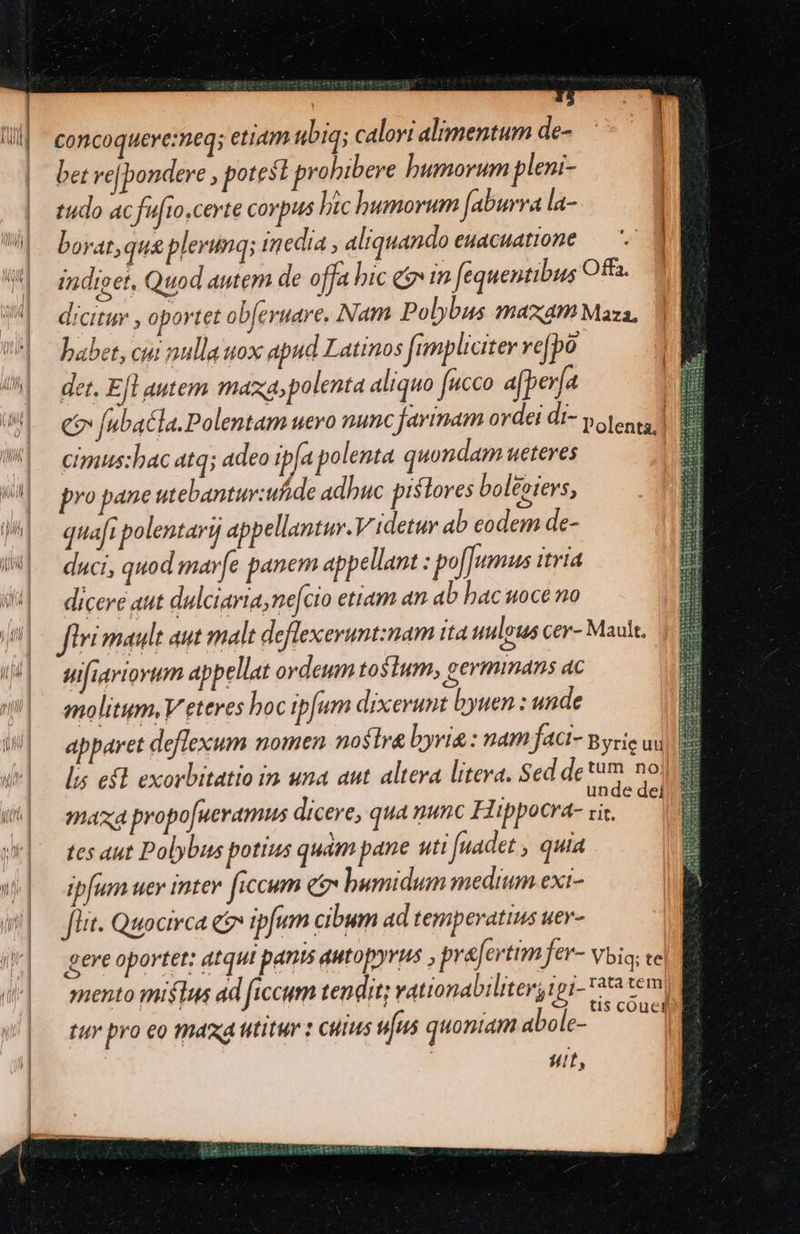 15
concoquere: neq; etiam ubiq; calori alimentum de-
bet respondere, potest prohibere humorum pleni-
tudo ac fusio. certe corpus hîc humorum saburra la-
borat, quæ plerunq; inedia, aliquando euacuatione
indiget. Quod autem de offa hic & in sequentibus Offa.
dicitur, oportet obseruare. Nam Polybus mazam Maza,
habet, cui nulla uox apud Latinos simpliciter respō
det. Est autem maza, polenta aliquo succo aspersa
& subacta. Polentam uero nunc farinam ordei di- Polenta,
cimus: hac atq; adeo ipsa polenta quondam ueteres
pro pane utebantur: uñde adhuc pistores bolēgiers,
quasi polentarij appellantur. Videtur ab eodem de-
duci, quod marse panem appellant: possumus itria
dicere aut dulciaria, nescio etiam an ab hac uoce no
stri mault aut malt deflexerunt: nam ita uulgus cer- Mault.
uisiariorum appellat ordeum tostum, germinans ac
molitum. Veteres hoc ipsum dixerunt byuen: unde
apparet deflexum nomen nostræ byriæ: nam faci- Byrie uu
lis est exorbitatio in una aut altera litera. Sed de tum no
unde dei
maza proposueramus dicere, qua nunc Hippocra- rit.
tes aut Polybus potius quàm pane uti suadet, quia
ipsum uer inter siccum & humidum medium exi-
stit. Quocirca & ipsum cibum ad temperatius uer-
gere oportet: atqui panis autopyrus, præsertim fer- Vbiq; te
mento mistus ad siccum tendit; rationabiliter igi- rata tem
tur pro eo maza utitur: cuius usus quoniam abole- tis cōuei
uit,